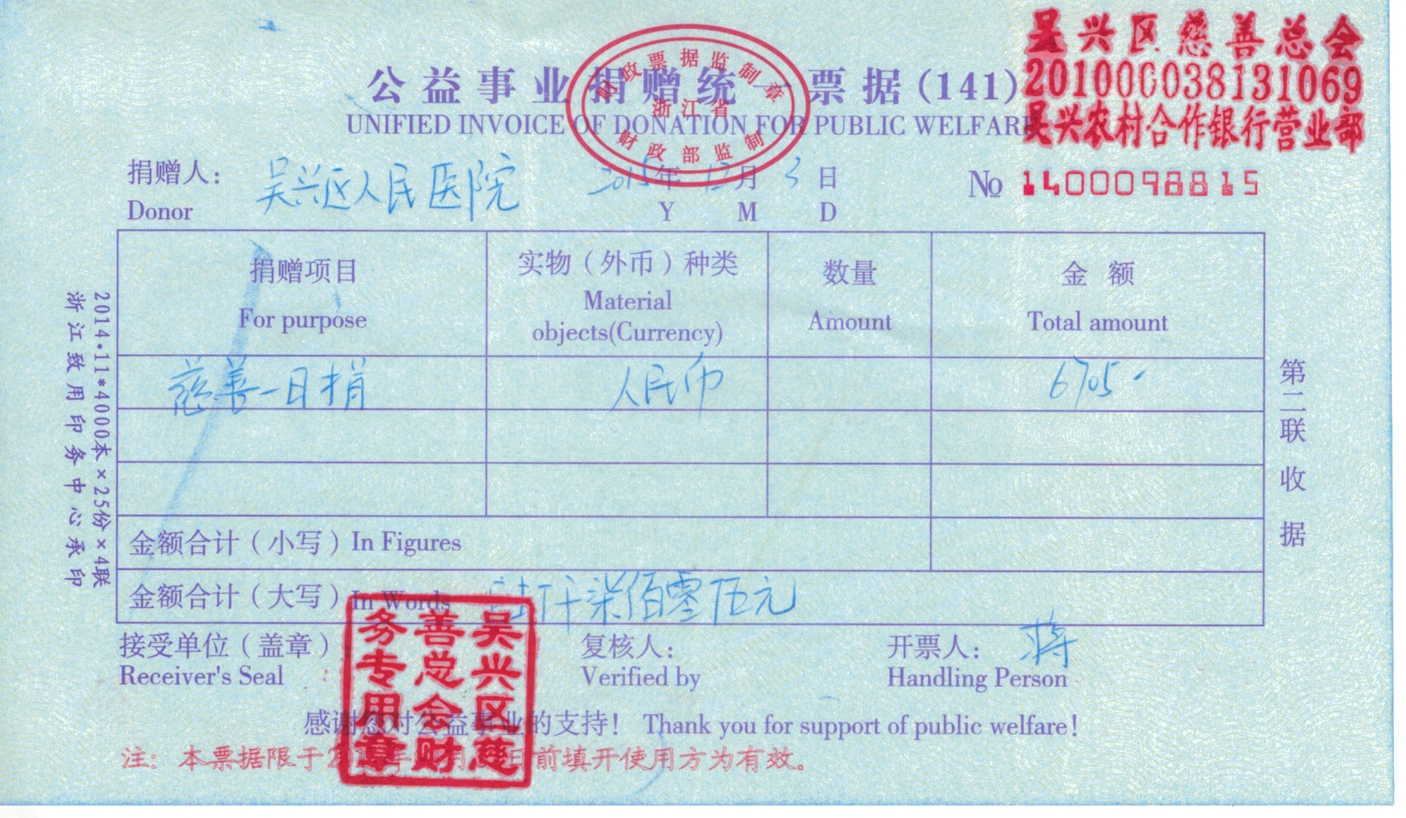 吴兴区慈善总会
201000038131069
吴兴农村合作银行营业部
财政票据监制章
浙江省
财政部监制
公益事业捐赠统一票据(141)
UNIFIED INVOICE OF DONATION FOR PUBLIC WELFARE
捐赠人: 吴兴区人民医院 2015年 12月 3日
Donor Y M D
№ 1400098815
捐赠项目 实物(外币)种类 数量 金 额
For purpose Material objects(Currency) Amount Total amount
慈善一日捐 人民币 6705-
金额合计(小写) In Figures
金额合计(大写) In Words 陆仟柒佰零伍元
接受单位(盖章) 复核人: 开票人: 蒋
Receiver's Seal Verified by Handling Person
吴兴区慈善总会财务专用章
感谢您对公益事业的支持! Thank you for support of public welfare!
注: 本票据限于 年 月 日前填开使用方为有效。
2014·11*4000本×25份×4联
浙江致用印务中心承印
第二联 收据